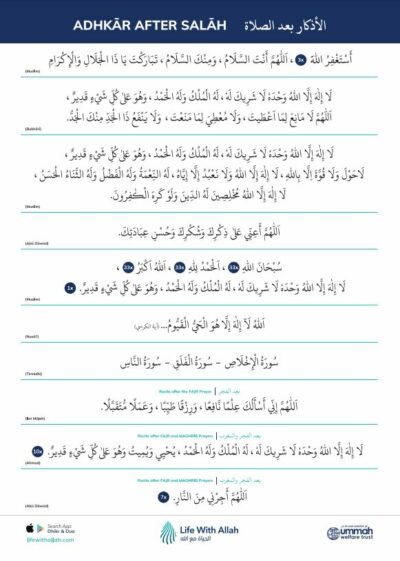 ADHKĀR AFTER SALĀH الأذكار بعد الصلاة
أَسْتَغْفِرُ اللهَ 3x ، اَللّٰهُمَّ أَنْتَ السَّلَامُ ، وَمِنْكَ السَّلَامُ ، تَبَارَكْتَ يَا ذَا الْجَلَالِ وَالْإِكْرَامِ
(Muslim)
لَا إِلٰهَ إِلَّا اللهُ وَحْدَهُ لَا شَرِيكَ لَهُ ، لَهُ الْمُلْكُ وَلَهُ الْحَمْدُ ، وَهُوَ عَلىٰ كُلِّ شَيْءٍ قَدِيرٌ ،
اَللّٰهُمَّ لَا مَانِعَ لِمَا أَعْطَيْتَ ، وَلَا مُعْطِيَ لِمَا مَنَعْتَ ، وَلَا يَنْفَعُ ذَا الْجَدِّ مِنْكَ الْجَدُّ.
(Bukhārī)
لَا إِلٰهَ إِلَّا اللهُ وَحْدَهُ لَا شَرِيكَ لَهُ ، لَهُ الْمُلْكُ وَلَهُ الْحَمْدُ ، وَهُوَ عَلىٰ كُلِّ شَيْءٍ قَدِيرٌ ،
لَاحَوْلَ وَلَا قُوَّةَ إِلَّا بِاللهِ ، لَا إِلٰهَ إِلَّا اللهُ وَلَا نَعْبُدُ إِلَّا إِيَّاهُ ، لَهُ النِّعْمَةُ وَلَهُ الْفَضْلُ وَلَهُ الثَّنَاءُ الْحَسَنُ ،
لَا إِلٰهَ إِلَّا اللهُ مُخْلِصِينَ لَهُ الدِّينَ وَلَوْ كَرِهَ الْكٰفِرُونَ.
(Muslim)
اَللّٰهُمَّ أَعِنِّي عَلىٰ ذِكْرِكَ وَشُكْرِكَ وَحُسْنِ عِبَادَتِكَ.
(Abū Dāwūd)
سُبْحَانَ اللهِ 33x ، اَلْحَمْدُ لِلهِ 33x ، اَللهُ أَكْبَرُ 33x ،
لَا إِلٰهَ إِلَّا اللهُ وَحْدَهُ لَا شَرِيكَ لَهُ ، لَهُ الْمُلْكُ وَلَهُ الْحَمْدُ ، وَهُوَ عَلىٰ كُلِّ شَيْءٍ قَدِيرٌ. 1x
(Muslim)
اَللهُ لَآ إِلٰهَ إِلَّا هُوَ الْحَيُّ الْقَيُّومُ... (آية الكرسي)
(Nasā'ī)
سُورَةُ الْإِخْلَاصِ – سُورَةُ الْفَلَقِ – سُورَةُ النَّاسِ
(Tirmidhī)
Recite after the FAJR Prayer | بعد الفجر
اَللّٰهُمَّ إِنِّي أَسْأَلُكَ عِلْمًا نَافِعًا ، وَرِزْقًا طَيِّبًا ، وَعَمَلًا مُتَقَبَّلًا.
(Ibn Mājah)
Recite after FAJR and MAGHRIB Prayers | بعد الفجر والمغرب
لَا إِلٰهَ إِلَّا اللهُ وَحْدَهُ لَا شَرِيكَ لَهُ ، لَهُ الْمُلْكُ وَلَهُ الْحَمْدُ ، يُحْيِي وَيُمِيتُ وَهُوَ عَلىٰ كُلِّ شَيْءٍ قَدِيرٌ. 10x
(Aḥmad)
Recite after FAJR and MAGHRIB Prayers | بعد الفجر والمغرب
اَللّٰهُمَّ أَجِرْنِي مِنَ النَّارِ. 7x
(Abū Dāwūd)
Search App: Dhikr & Dua
lifewithallah.com
Life With Allah
الحياة مع الله
ummah welfare trust